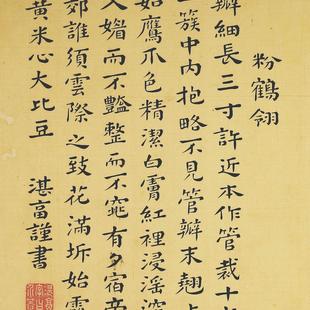 粉鶴翎
瓣細長三寸許近本作管裁十
簇中内抱略不見管瓣末翹
如鷹爪色精潔白紅裡浸淫深
媚而不豔整而不窕有夕宿帝
郊誰須雲際之致花滿坼始露
黄米心大比豆 湛富謹書